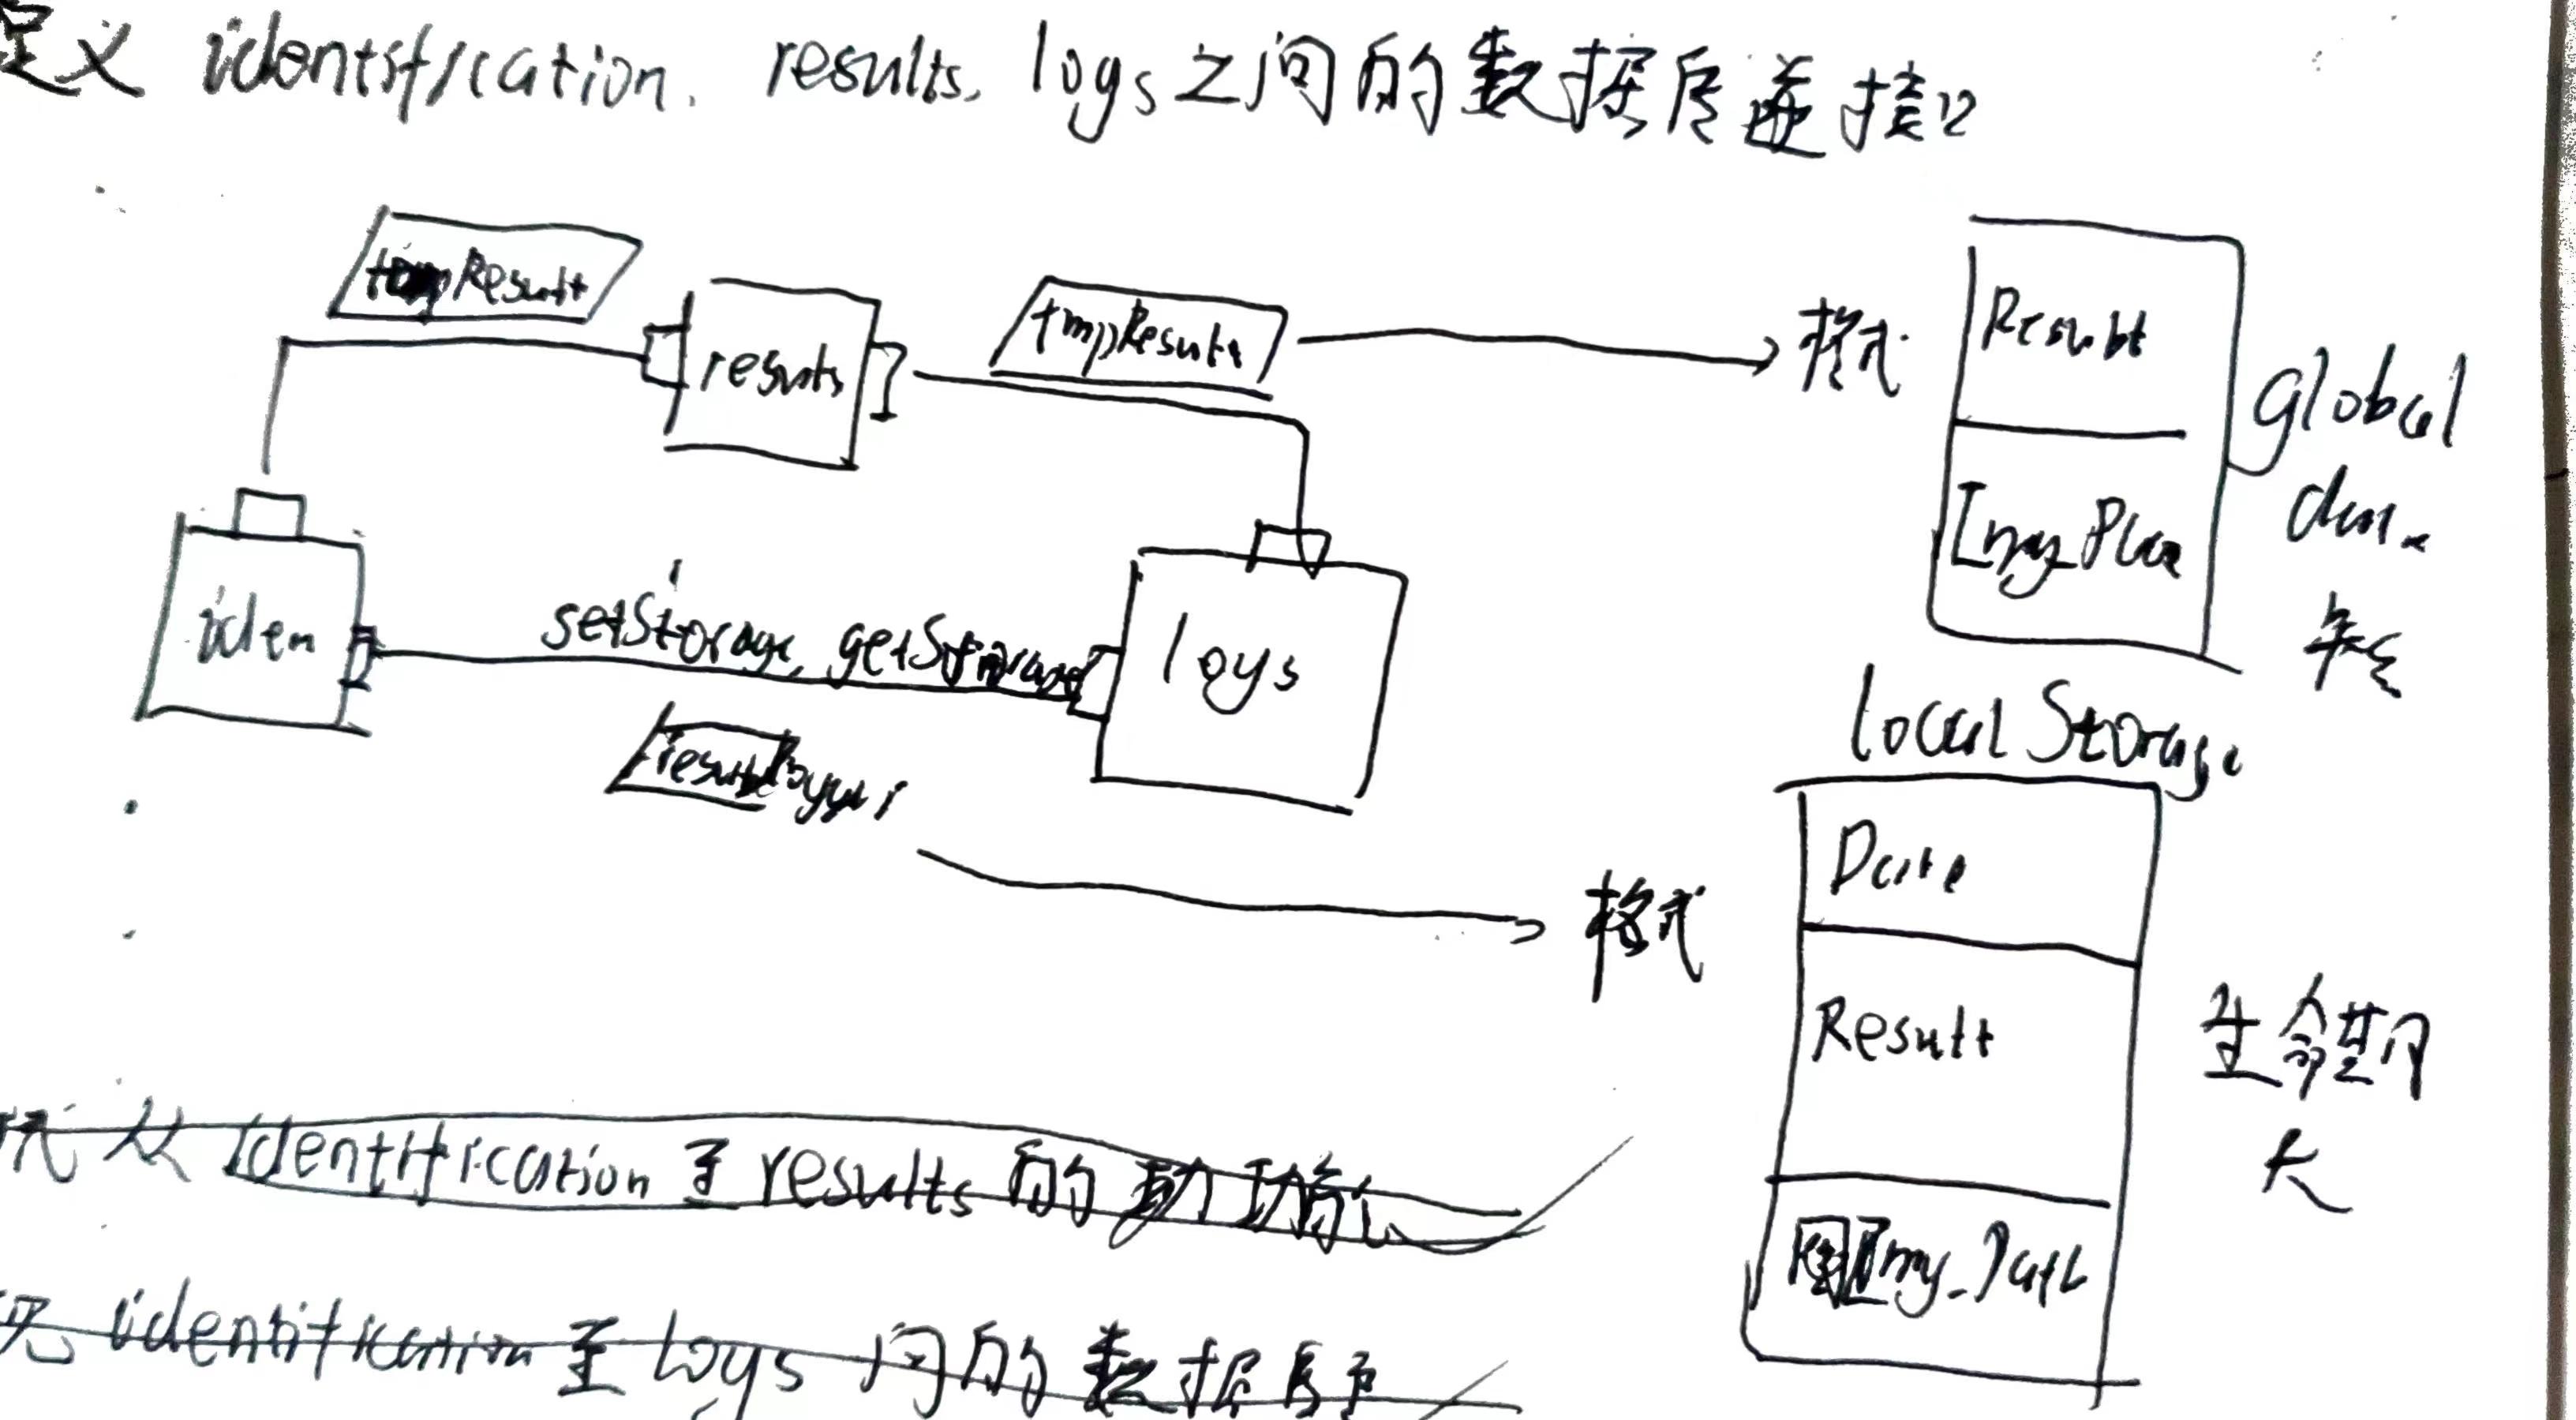 定义 identification. results. logs 之间的数据库 接口
tmpResult
results
tmpResults
格式
Result
Img_
global
iden
setStorage, getStorage
logs
result
local Storage
格式
Date
Result
Img_Path
生命期
长
从 identification 至 results 的 功能
identification 至 logs 间的数据